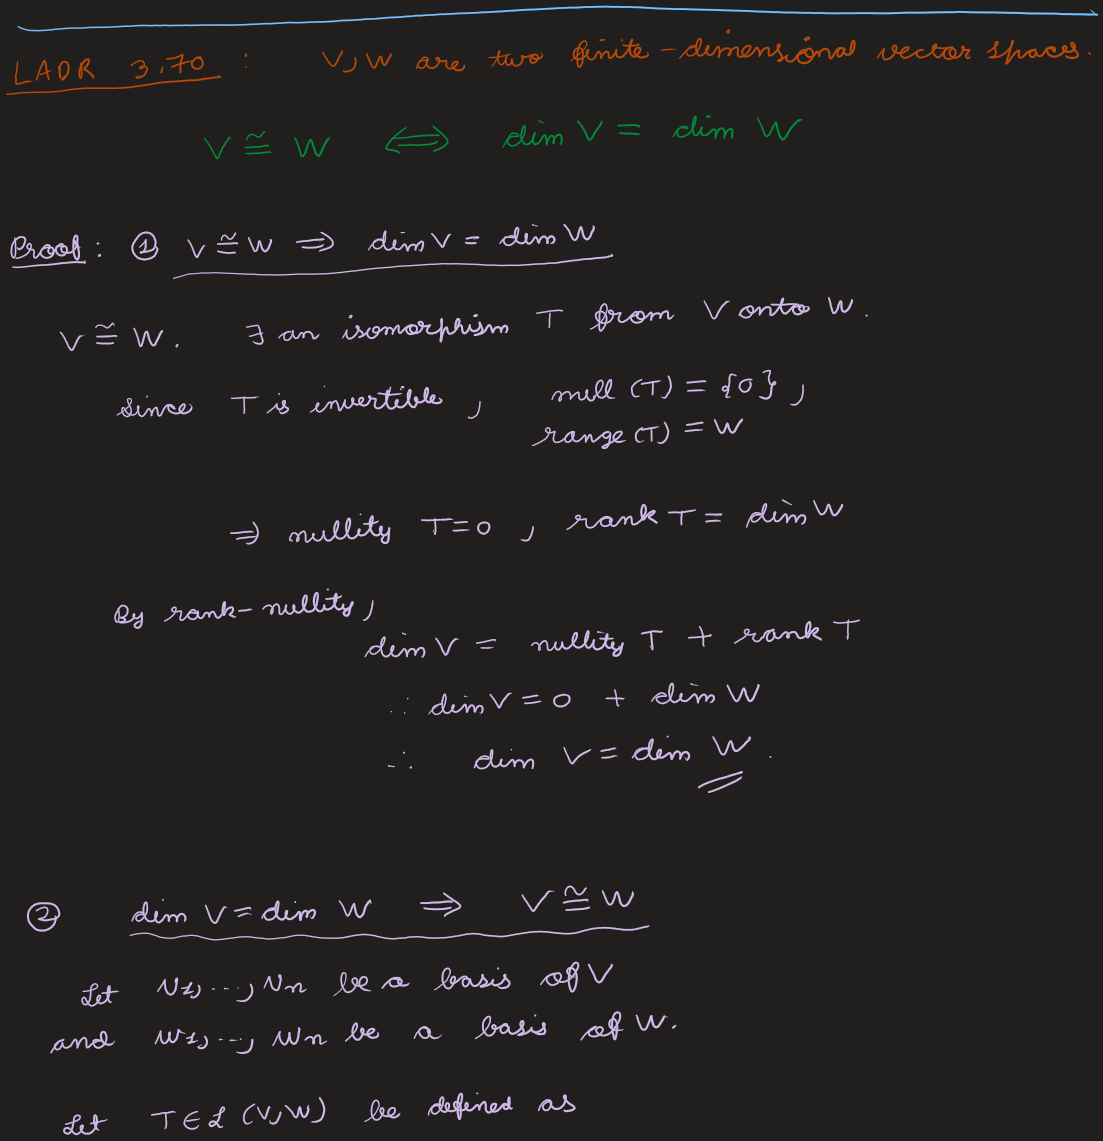 LADR 3.70 : V, W are two finite-dimensional vector spaces.
V ≅ W ⟺ dim V = dim W
Proof : ① V ≅ W ⇒ dim V = dim W
V ≅ W. ∃ an isomorphism T from V onto W.
Since T is invertible, null (T) = {0},
range (T) = W
⇒ nullity T = 0, rank T = dim W
By rank-nullity,
dim V = nullity T + rank T
∴ dim V = 0 + dim W
∴ dim V = dim W.
② dim V = dim W ⇒ V ≅ W
Let v1, ..., vn be a basis of V
and w1, ..., wn be a basis of W.
Let T ∈ L (V, W) be defined as